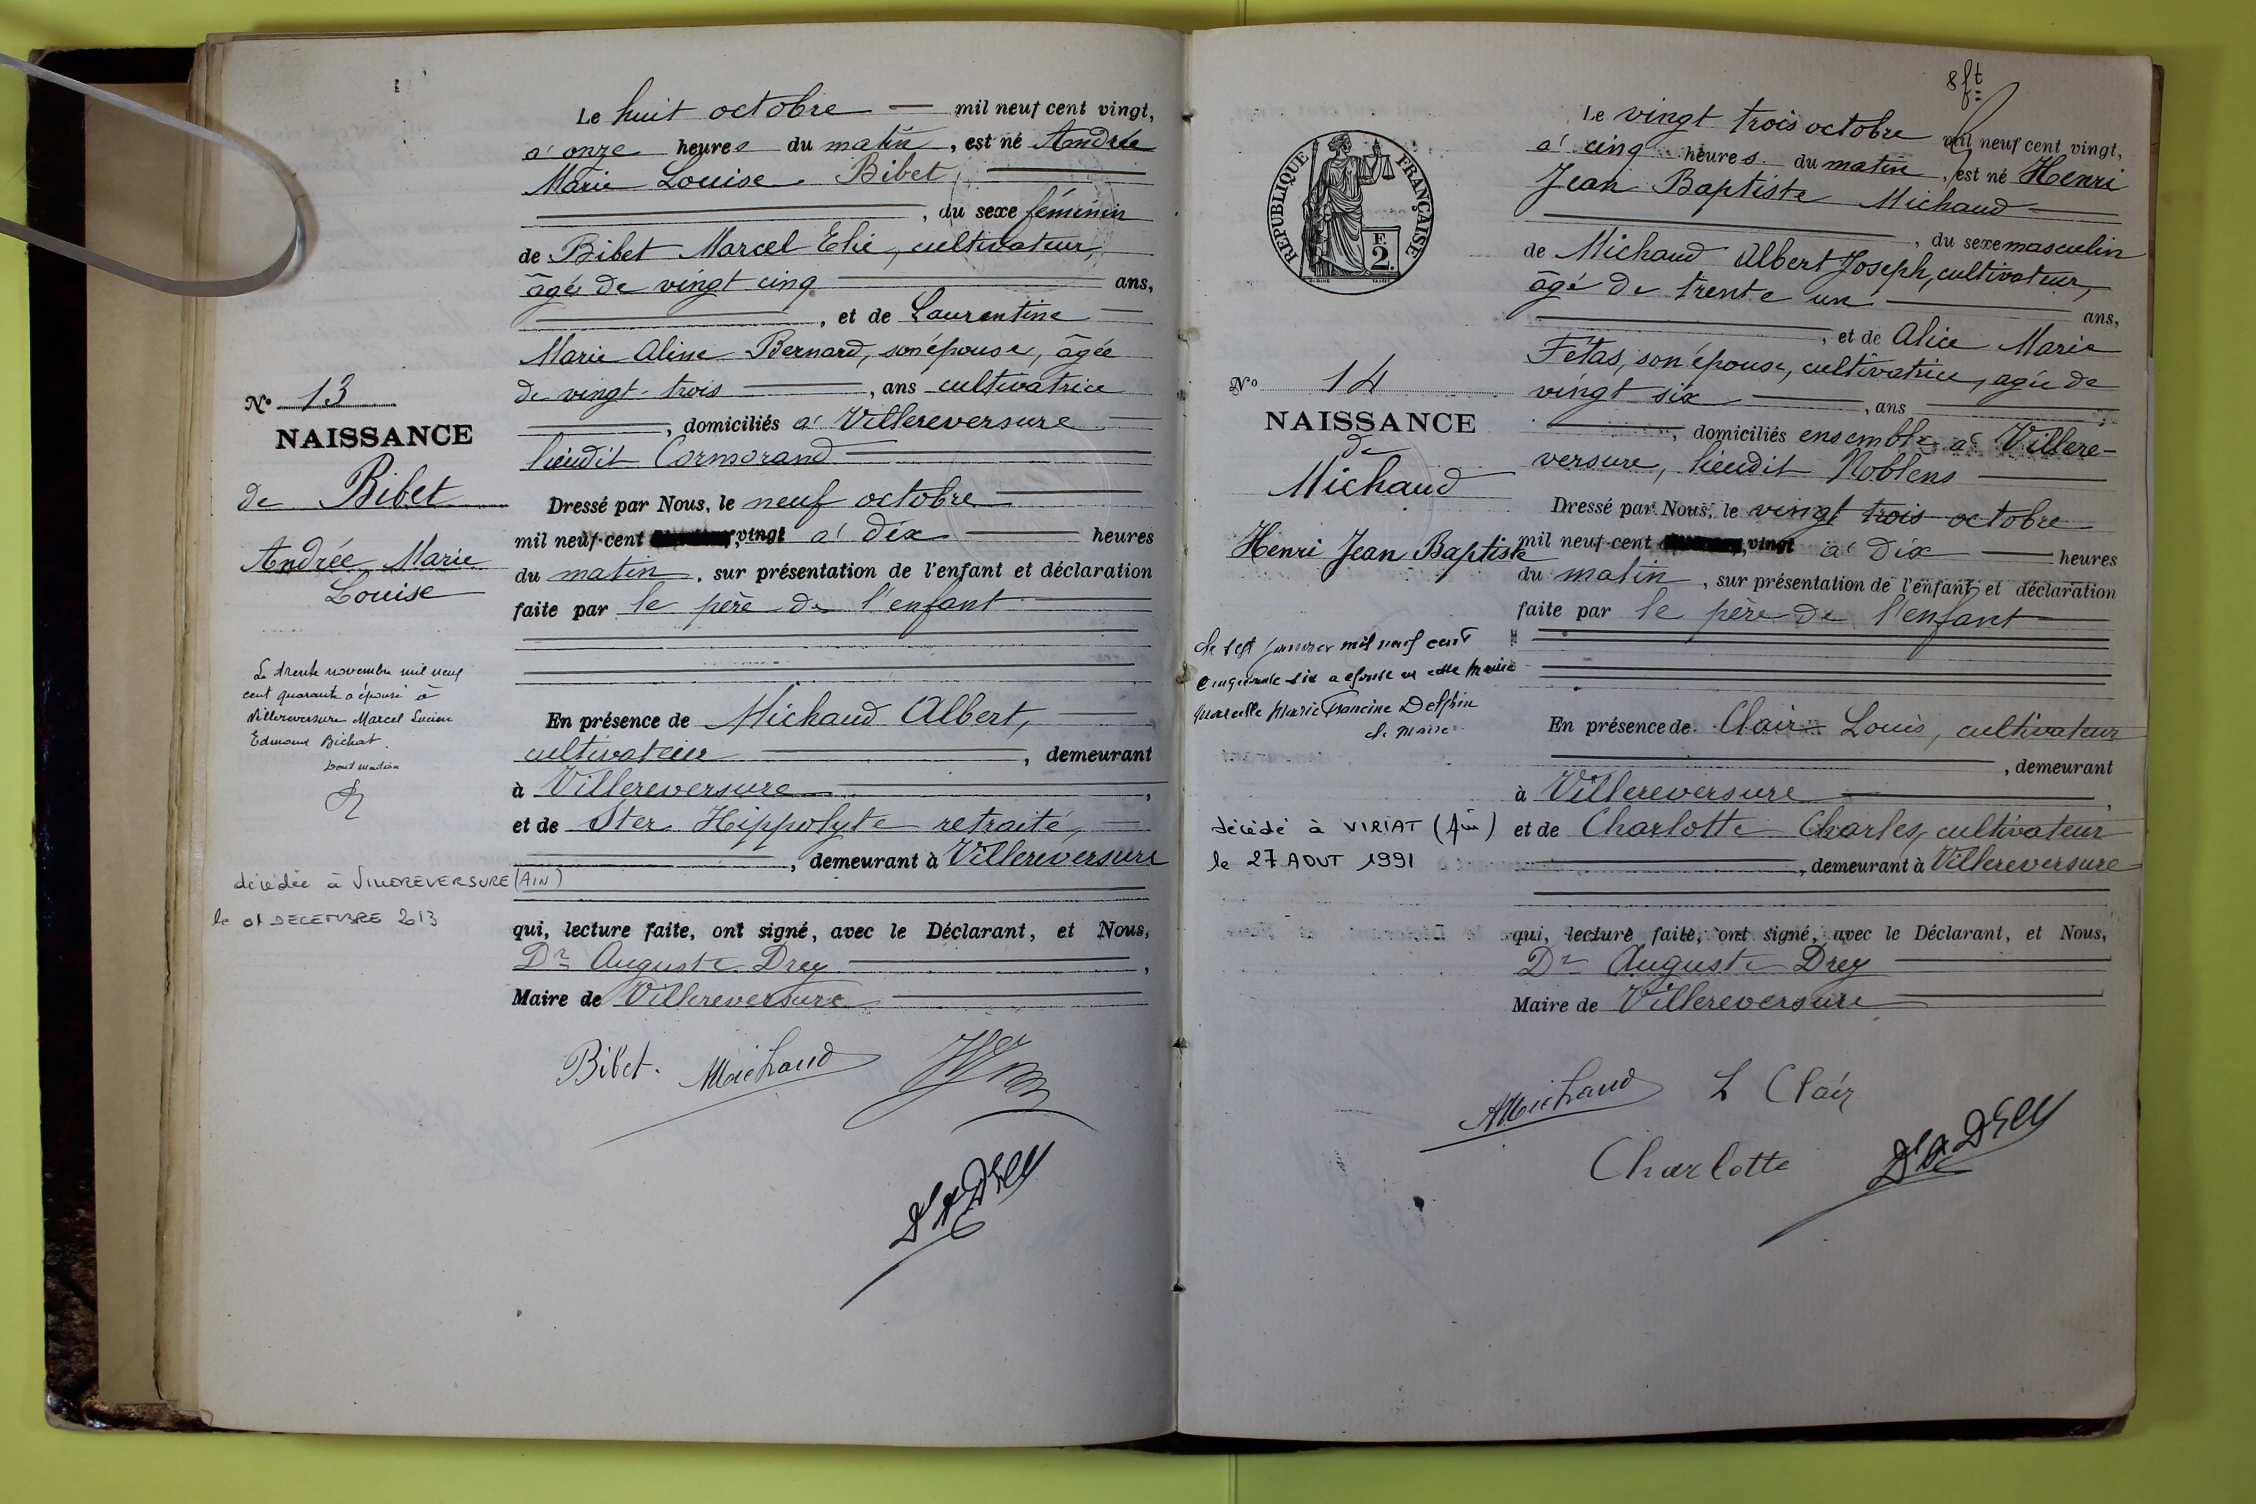 Le huit octobre mil neuf cent vingt,
à onze heures du matin, est né Andrée
Marie Louise Bibet,
, du sexe féminin
de Bibet Marcel Elie, cultivateur,
âgé de vingt cinq ans,
, et de Laurentine
Marie Aline Bernard, son épouse, âgée
de vingt-trois, ans cultivatrice
, domiciliés à Villereversure
lieudit Cormorand
No 13
NAISSANCE
de Bibet
Andrée Marie
Louise
Dressé par Nous, le neuf octobre
mil neuf cent vingt à dix heures
du matin, sur présentation de l'enfant et déclaration
faite par le père de l'enfant
Le trente novembre mil neuf
cent quarante a épousé à
Villereversure Marcel Lucien
Edmond Bichat.
Dont mention
En présence de Michaud Albert,
cultivateur, demeurant
à Villereversure,
et de Ster Hippolyte retraité,
, demeurant à Villereversure
décédée à VILLEREVERSURE (AIN)
le 01 DECEMBRE 2013
qui, lecture faite, ont signé, avec le Déclarant, et Nous,
Dr Auguste Drey,
Maire de Villereversure
Bibet. AMichaud
Dr A Drey
8ft
Le vingt trois octobre mil neuf cent vingt,
à cinq heures du matin, est né Henri
Jean Baptiste Michaud
, du sexe masculin
de Michaud Albert Joseph, cultivateur,
âgé de trente un ans,
, et de Alice Marie
Fétas, son épouse, cultivatrice, agée de
vingt six, ans
, domiciliés ensemble à Villere-
versure, lieudit Noblens
REPUBLIQUE FRANÇAISE
F.
2.
No 14
NAISSANCE
de
Michaud
Henri Jean Baptiste
Dressé par Nous, le vingt trois octobre
mil neuf cent vingt à dix heures
du matin, sur présentation de l'enfant et déclaration
faite par le père de l'enfant
Le sept janvier mil neuf cent
cinquante six a épousé en cette mairie
Marcelle Marie Francine Delphin
Le Maire
En présence de Clair Louis, cultivateur
, demeurant
à Villereversure,
et de Charlotte Charles, cultivateur
, demeurant à Villereversure
décédé à VIRIAT (Ain)
le 27 AOUT 1991
qui, lecture faite, ont signé, avec le Déclarant, et Nous,
Dr Auguste Drey
Maire de Villereversure
AMichaud L Clair
Charlotte Dr A Drey